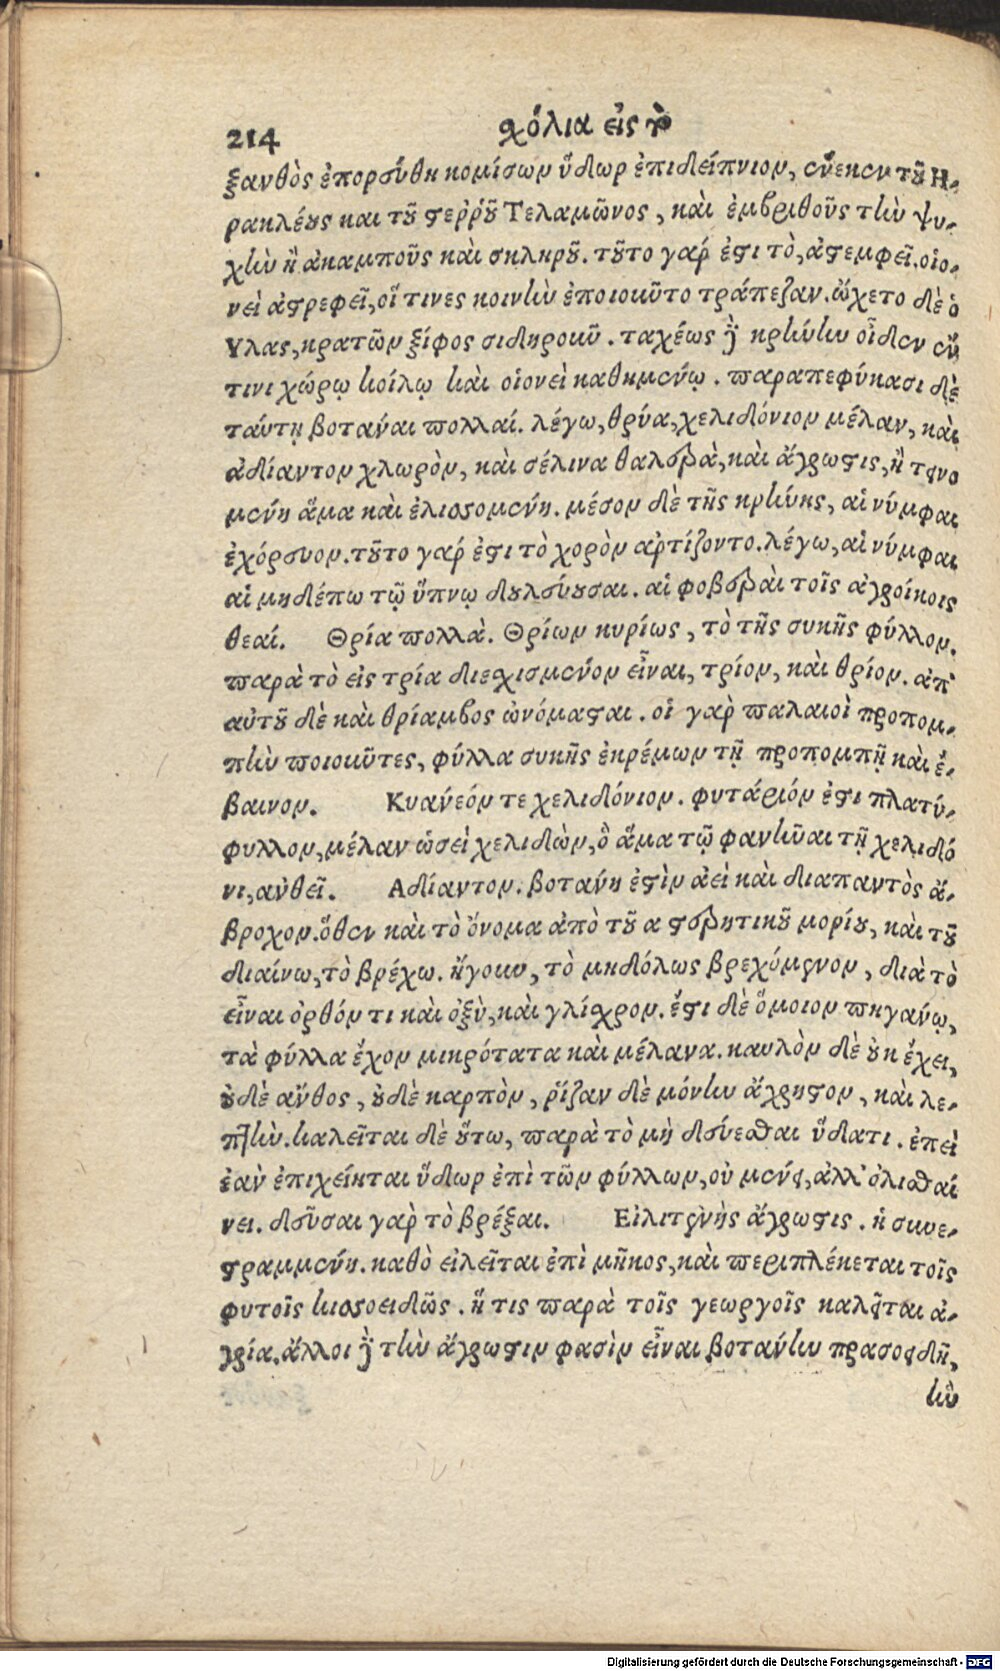 214 σχόλια εἰς τὸ
ξανθὸς ἐπορεύθη κομίσων ὕδωρ ἐπιδείπνιον, ἕνεκεν τοῦ Η-
ρακλέους και τοῦ στερροῦ Τελαμῶνος, καὶ ἐμβριθοῦς τὴν ψυ-
χὴν ἢ ἀκαμποῦς καὶ σκληροῦ. τοῦτο γάρ ἐστι τὸ, ἀστεμφεῖ. οἱο-
νεὶ ἀστρεφεῖ, οἵ τινες κοινὴν ἐποιοῦντο τράπεζαν. ᾤχετο δὲ ὁ
Υλας, κρατῶν ξίφος σιδηροῦν. ταχέως δὲ κρήνην οἶδεν ἔν
τινι χώρῳ κοίλῳ καὶ οἱονεὶ καθημένῳ. παραπεφύκασι δὲ
ταύτῃ βοτάναι πολλαί. λέγω, θρύα, χελιδόνιον μέλαν, καὶ
ἀδίαντον χλωρὸν, καὶ σέλινα θαλερὰ, καὶ ἄγρωστις, ἢ τεινο
μένη ἅμα καὶ ἑλισσομένη. μέσον δὲ τῆς κρήνης, αἱ νύμφαι
ἐχόρευον. τοῦτο γάρ ἐστι τὸ χορὸν ἀρτίζοντο. λέγω, αἱ νύμφαι
αἱ μηδέπω τῷ ὕπνῳ δουλεύουσαι. αἱ φοβεραὶ τοῖς ἀγροίκοις
θεαί. Θρία πολλὰ. Θρίων κυρίως, τὸ τῆς συκῆς φύλλον.
παρὰ τὸ εἰς τρία διεσχισμένον εἶναι, τρίον, καὶ θρίον. ἀπ᾽
αὐτοῦ δὲ καὶ θρίαμβος ὠνόμασται. οἱ γὰρ παλαιοὶ προπομ-
πὴν ποιοῦντες, φύλλα συκῆς ἐκρέμων τῇ προπομπῇ καὶ ἔ-
βαινον. Κυανεόν τε χελιδόνιον. φυτάριόν ἐστι πλατύ-
φυλλον, μέλαν ὡσεὶ χελιδὼν, ὃ ἅμα τῷ φανῆναι τῇ χελιδό
νι, ἀνθεῖ. Αδίαντον. βοτάνη ἐστὶν ἀεὶ καὶ διαπαντὸς ἄ-
βροχον. ὅθεν καὶ τὸ ὄνομα ἀπὸ τοῦ α στερητικοῦ μορίου, καὶ τοῦ
διαίνω, τὸ βρέχω. ἤγουν, τὸ μηδόλως βρεχόμενον, διὰ τὸ
εἶναι ὀρθόν τι καὶ ὀξὺ, καὶ γλίσχρον. ἔστι δὲ ὅμοιον πηγάνῳ,
τὰ φύλλα ἔχον μικρότατα καὶ μέλανα. καυλὸν δὲ οὐκ ἔχει,
οὐδὲ ἄνθος, οὐδὲ καρπὸν, ῥίζαν δὲ μόνην ἄχρηστον, καὶ λε-
πτὴν. καλεῖται δὲ οὕτω, παρὰ τὸ μὴ δεύεσθαι ὕδατι. ἐπεὶ
ἐὰν ἐπιχέηται ὕδωρ ἐπὶ τῶν φύλλων, οὐ μένει, ἀλλ᾽ ὀλισθαί
νει. δεῦσαι γὰρ τὸ βρέξαι. Εἰλιτενὴς ἄγρωστις. ἡ συνε-
στραμμένη. καθὸ εἱλεῖται ἐπὶ μῆκος, καὶ περιπλέκεται τοῖς
φυτοῖς κισσοειδῶς. ἥ τις παρὰ τοῖς γεωργοῖς καλεῖται ἀ-
γρία. ἄλλοι δὲ τὴν ἄγρωστιν φασὶν εἶναι βοτάνην πρασοειδῆ,
ἣν
Digitalisierung gefördert durch die Deutsche Forschungsgemeinschaft - DFG